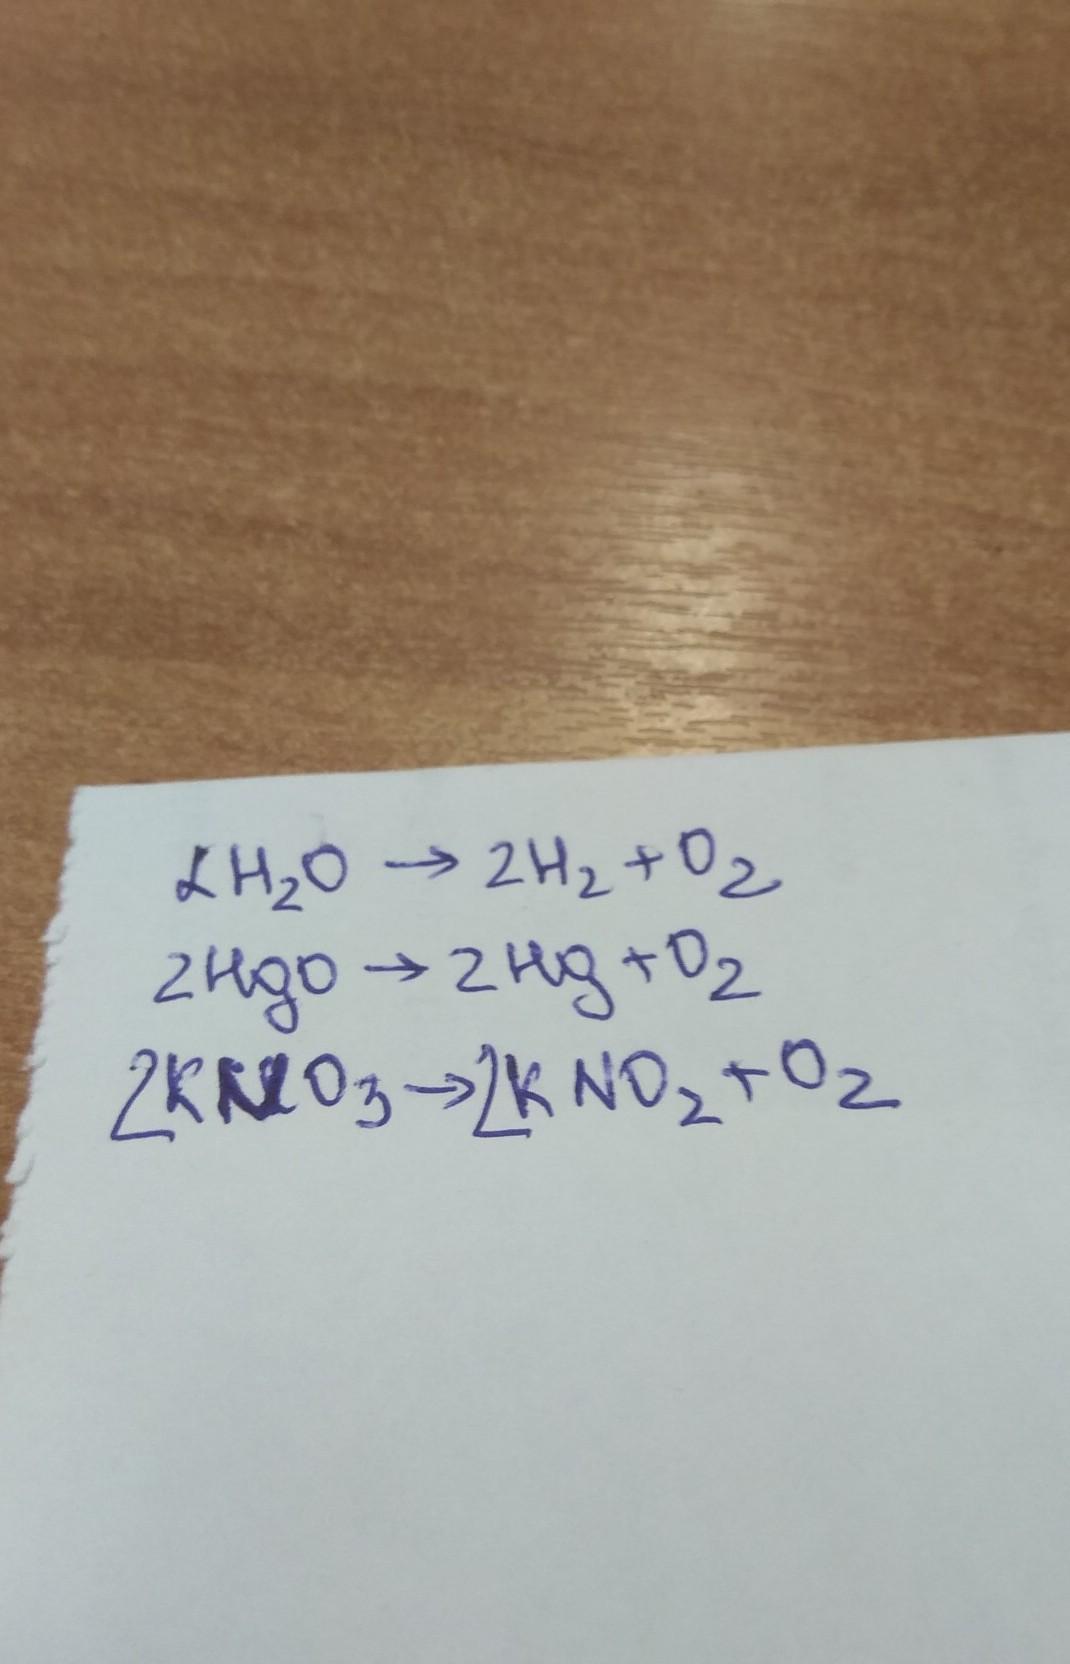 2H₂O → 2H₂ + O₂
2HgO → 2Hg + O₂
2KNO₃ → 2KNO₂ + O₂